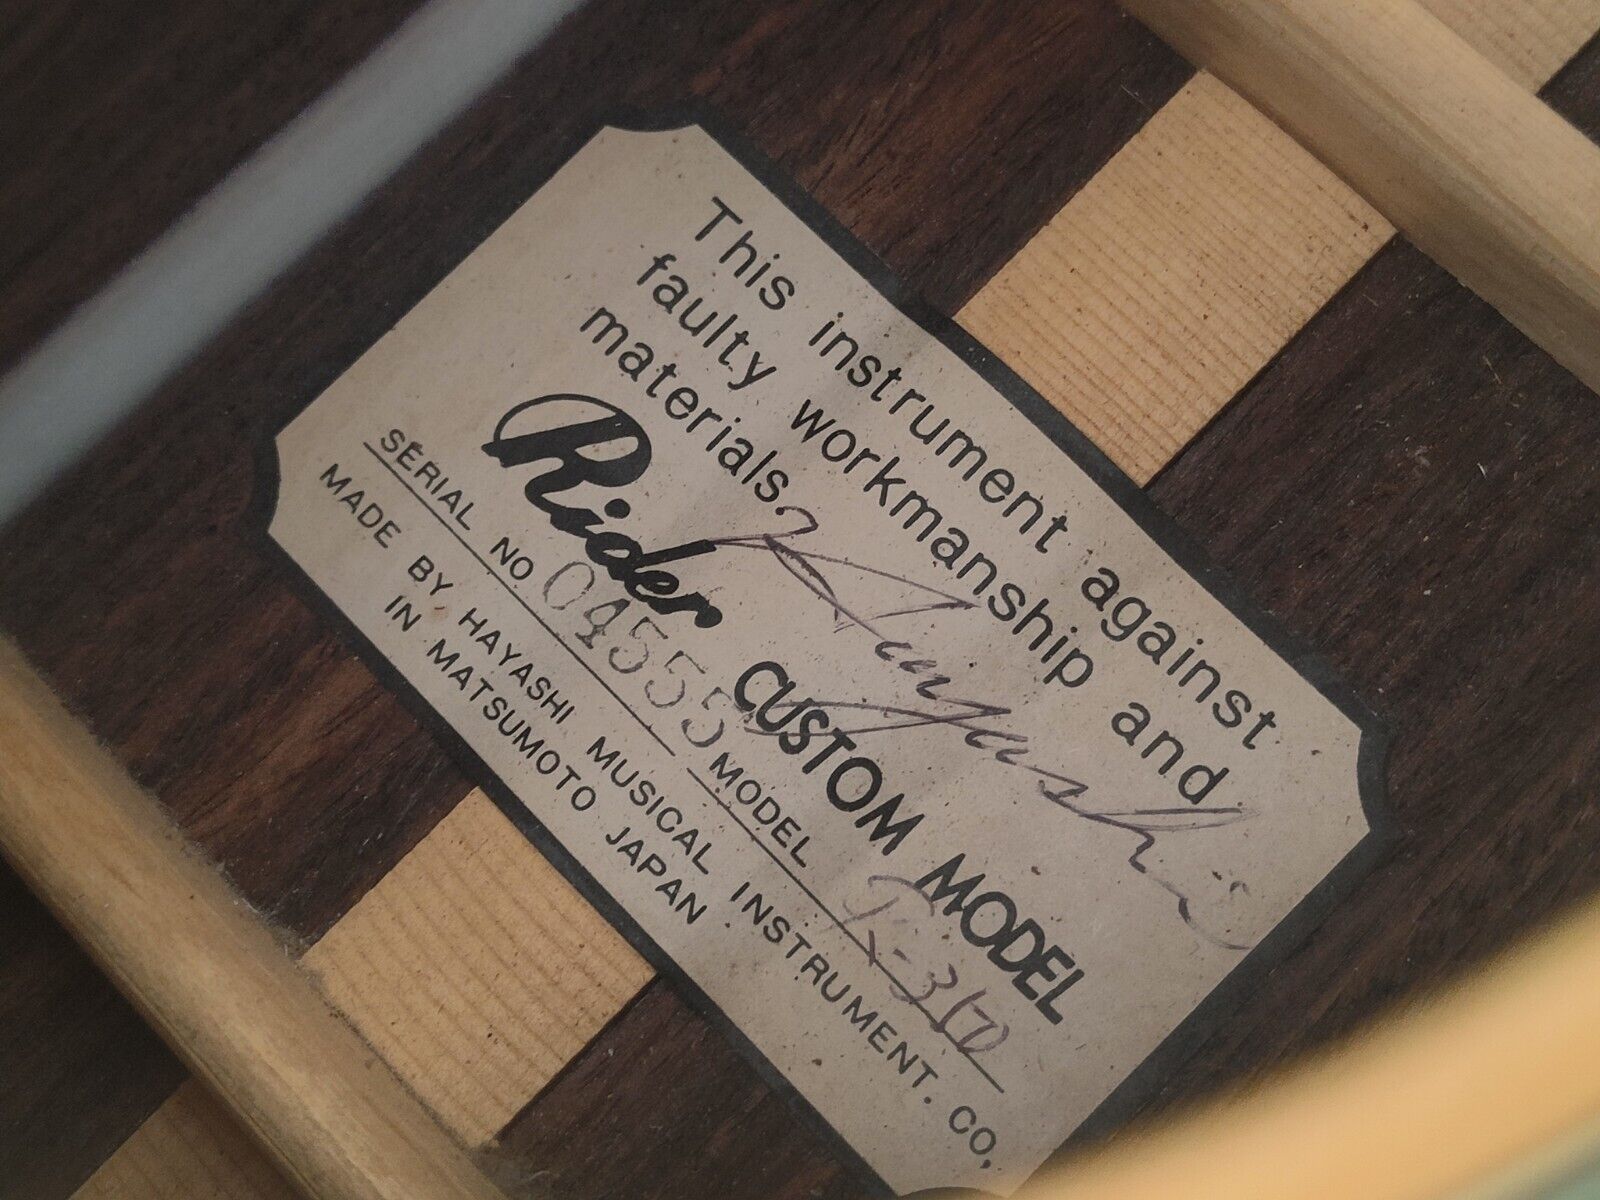 This instrument against
faulty workmanship and
materials.
Hayashi
Rider CUSTOM MODEL
SERIAL NO 04555 MODEL R-317D
MADE BY HAYASHI MUSICAL INSTRUMENT. CO,
IN MATSUMOTO JAPAN